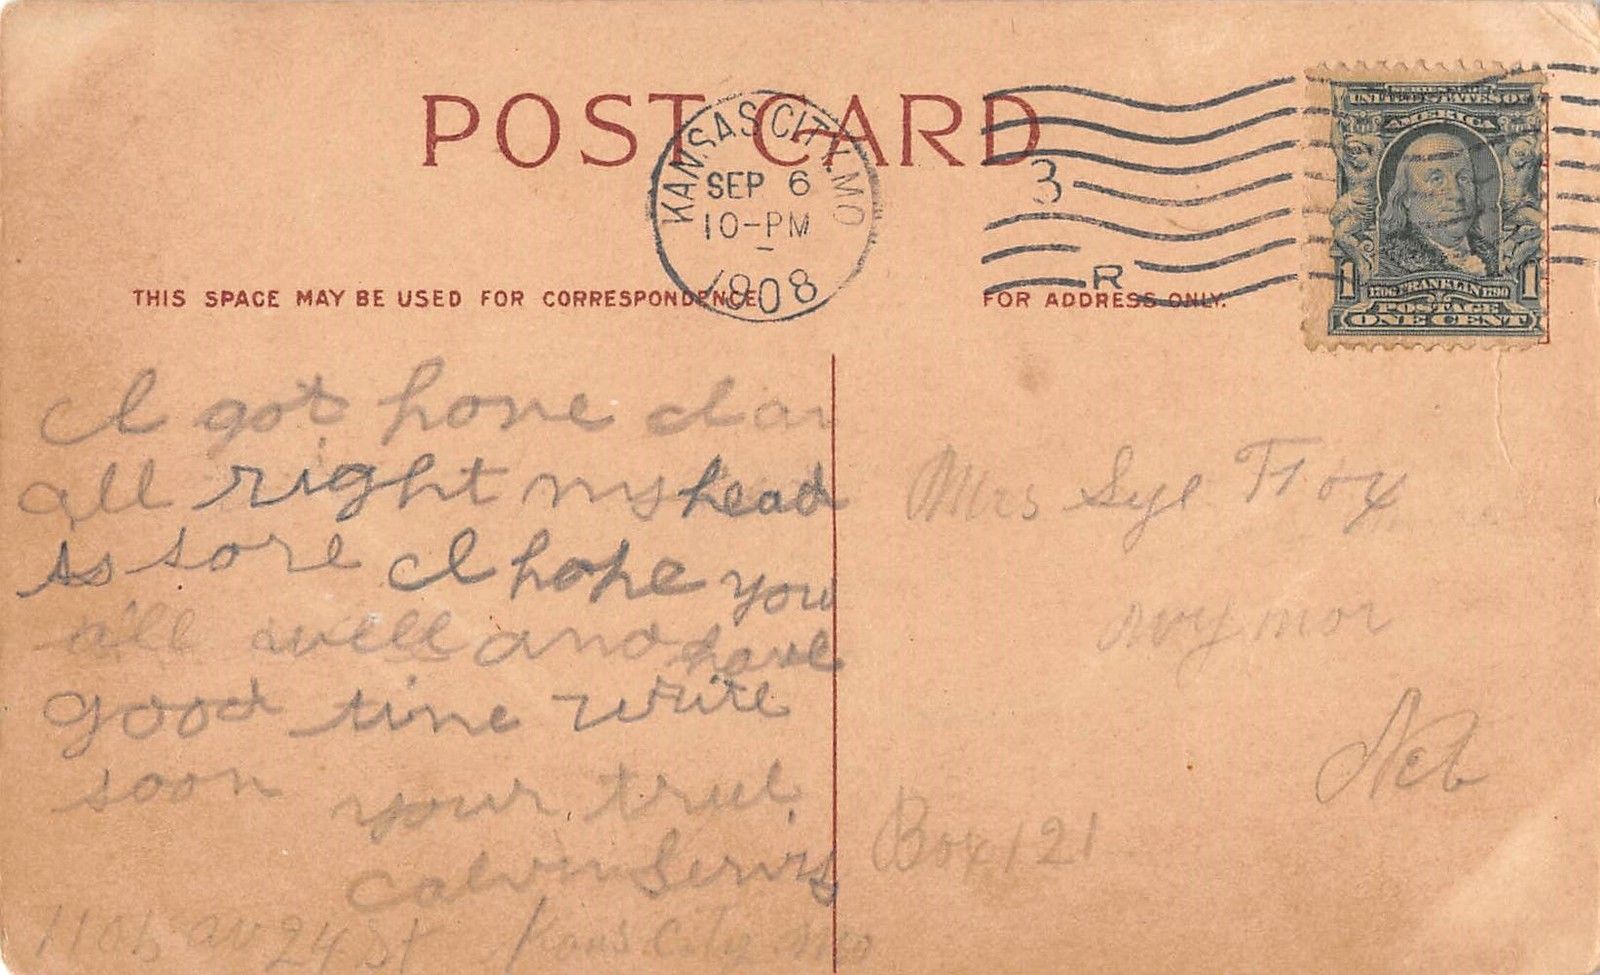 POST CARD
KANSAS CITY, MO
SEP 6
10-PM
1908
3
R
UNITED STATES OF
AMERICA
1 FRANKLIN 1
POSTAGE
ONE CENT
THIS SPACE MAY BE USED FOR CORRESPONDENCE
FOR ADDRESS ONLY.
I got hone
all right my head
is sore I hope you
all well and have
good tine write
soon
your true
Calvin
24 St Kans. City Mo
Mrs Syl
wymor
Neb
Box 121